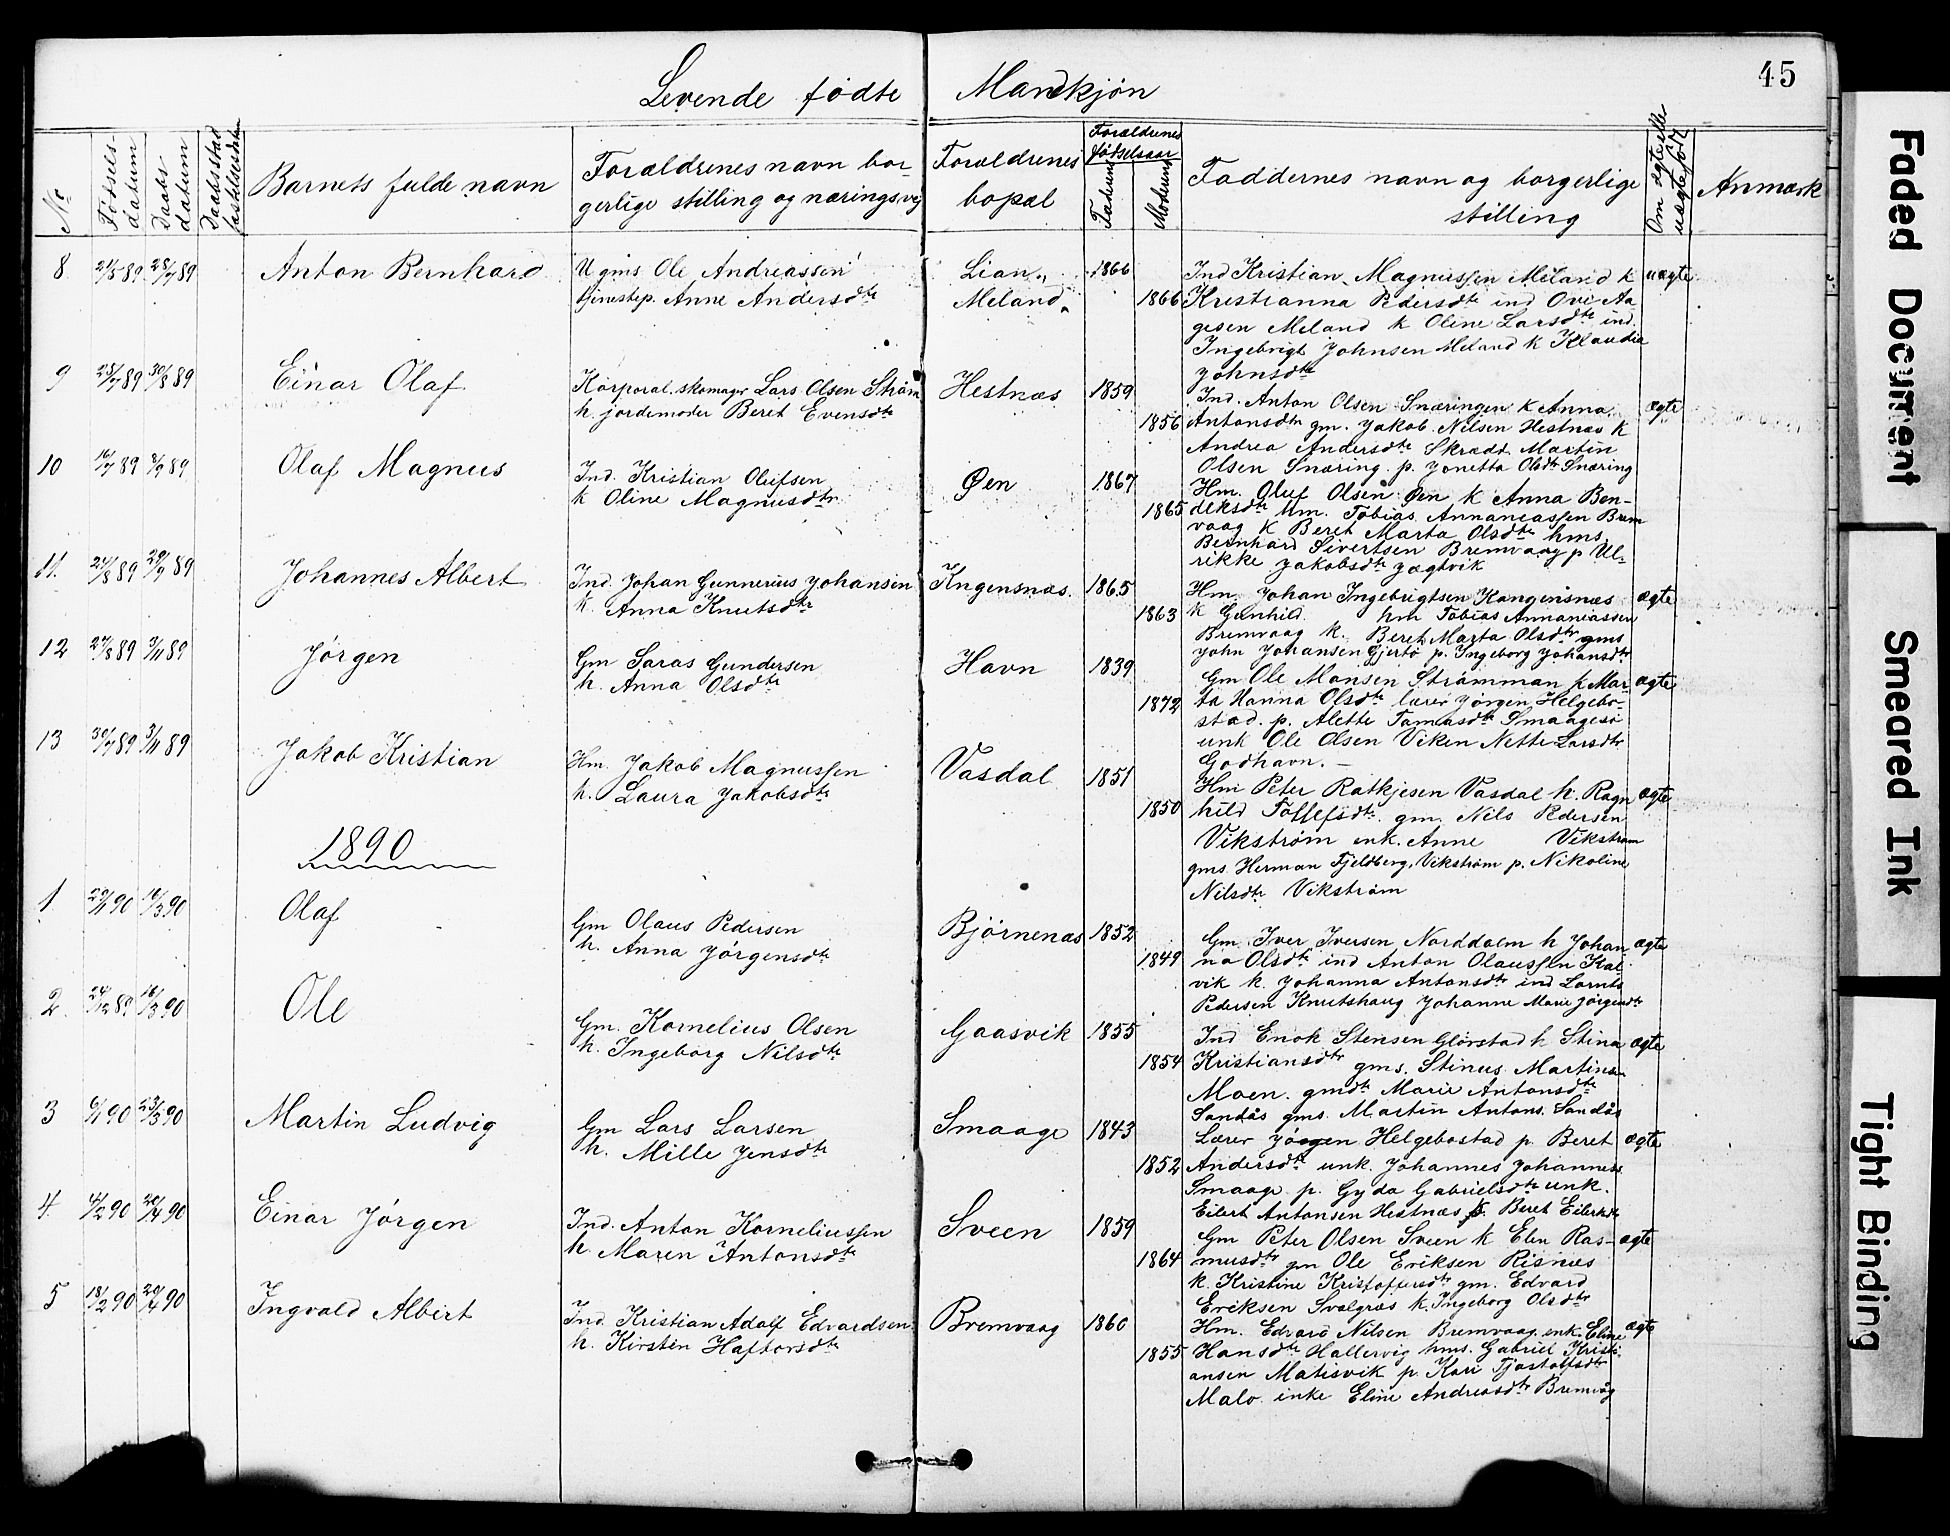 45
Levende fødte Mandkjøn
No
Fødsels-datum
Daabs datum
Daabsstad
Barnets fulde navn
Forældrenes navn borgerlige stilling og næringsvej
Forældrenes bopæl
Forældrenes fødselsaar
Faderens
Moderens
Faddernes navn og borgerlige stilling
Om ægte elle uægte født
Anmærk
8. 21/5 89 28/7 89 Anton Bernhard
Ugms Ole Andreassen
tjenestep. Anne Andersdtr
Lian,
Meland.
1866
1866
Ind Kristian Magnussen Meland k
Kristianna Pedersdtr ind Ove Aa
gesen Meland k Oline Larsdtr ind.
Ingebrigt Johnsen Meland k Klaudia
Johnsdtr
uægte
9 23/7 89 30/8 89 Einar Olaf
Korporal. skomager Lars Olsen Strøm
h. jordemoder Beret Evensdtr
Hestnæs
1859
1856
Ind. Anton Olsen Snæringen k Anna
Antonsdtr gm. Jakob Nilsen Hestnæs k
Andrea Andersdtr Skrædt Martin
Olsen Snæring. p. Jonetta Olsdtr Snæring
ægte
10 16/7 89 8/9 89 Olaf Magnus
Ind. Kristian Olufsen
k Oline Magnusdtr
Øen
1867
1865
Hm. Oluf Olsen Øen k Anna Ben-
deksdtr Hm. Tobias Annaniassen Brem
vaag k Beret Marta Olsdtr hms
Bernhard Sivertsen Bremvaag p Ul-
rikke Jakobsdtr Jægtvik
11. 24/8 89 29/9 89 Johannes Albert
Ind. Johan Gunnerius Johansen
k. Anna Knutsdtr
Kngensnæs.
1865
1863
Hm. Johan Ingebrigtsen Kongensnæs
k Gunhild hm Tobias Annaniassen
Bremvaag k. Beret Marta Olsdtr gms
John Johansen Gjertø p. Ingeborg Johansdtr
ægte
12 27/8 89 3/11 89 Jørgen
Gm Saras Gundersen
h. Anna Olsdtr
Havn
1839
1872
Gm Ole Monsen Strømman k Mar-
ta Hanna Olsdtr lærer Jørgen Helgebo-
stad. p. Alette Tomasdtr Smaagesø
unk Ole Olsen Viken Nette Larsdtr
Godhavn. —
ægte
13 30/7 89 3/11 89 Jakob Kristian
Hm. Jakob Magnussen
h. Laura Jakobsdtr
Vasdal
1851
1850
Hm Peter Ratkjesen Vasdal h. Ragn
hild Tollefsdtr. gm. Nils Pedersen
Vikstrøm enk. Anne Vikstrøm
gms. Herman Fjeldberg, Vikstrøm p. Nikoline
Nilsdtr Vikstrøm
ægte
1890
1. 29/1 90 16/3 90 Olaf
Gm Olaus Pedersen
h. Anna Jørgensdtr
Bjørnenæs
1852
1849
Gm. Iver Iversen Norddalm h Johan
na Olsdtr ind Anton Olaussen Kal
vik k. Johanna Antonsdtr ind Lornts
Pedersen Knutshaug Johanne Marie Jørgensdtr
ægte
2. 24/12 89 16/3 90 Ole
Gm. Kornelius Olsen
h. Ingeborg Nilsdtr
Gaasvik
1855
1854
Ind Enok Stensen Glørstad h Stina
Kristiansdtr gms. Stinus Martinsen
Moen. gmdtr Marie Antonsdtr
Sandås gms. Martin Antons. Sandås
ægte
3 6/1 90 23/3 90 Martin Ludvig
Gm Lars Larsen
h. Mille Jensdtr
Smaage
1843
1852
Lærer Jørgen Helgebostad p. Beret
Andersdtr unk. Johannes Johanness.
Smaage p. Gyda Gabrielsdtr unk.
Eilert Antonsen Hestnæs p. Beret Eilertsdtr
ægte
4. 4/2 90 20/4 90 Einar Jørgen
Ind. Anton Korneliussen
h. Maren Antonsdtr
Sveen
1859
1864
Gm Peter Olsen Sveen k Elen Ras-
musdtr gm Ole Eriksen Risnæs
k. Kristine Kristofersdtr gm. Edvard
Eriksen Svalgræs k. Ingeborg Olsdtr
ægte
5 18/2 90 20/4 90 Ingvald Albert
Ind. Kristian Adolf Edvardsen
h. Kirsten Haftorsdtr
Bremvaag
1860
1855
Hm. Edvard Nilsen Bremvaag. enk. Eline
Hansdtr Hallervig hms. Gabriel Kristi-
ansen Matisvik p. Kari Tjøstolfsdtr
Malo. inke Eline Andreasdtr Bremvåg
ægte
Faded Document
Smeared Ink
Tight Binding